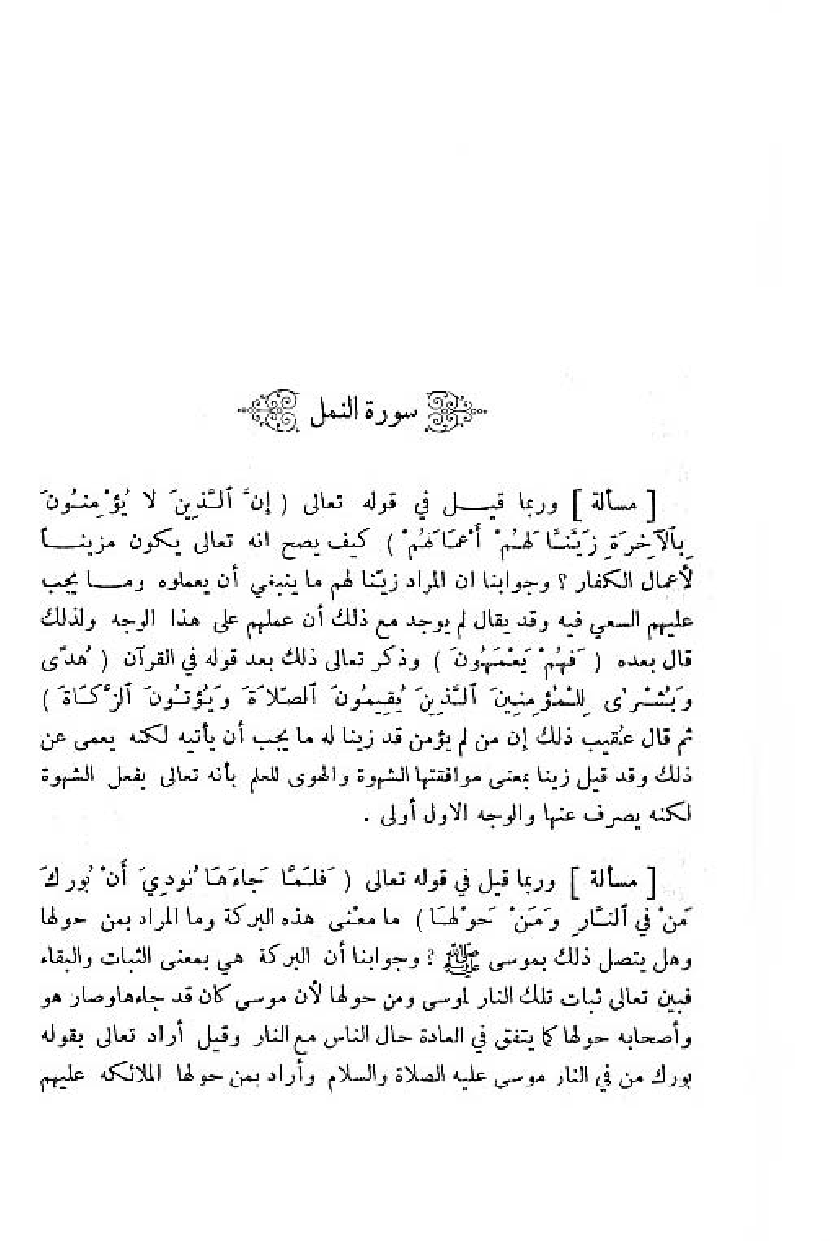 سورة النمل
[ مسألة ] وربما قيـــل في قوله تعالى ( إِنَّ ٱلَّذِينَ لا يُؤْمِنُونَ
بِٱلْآخِرَةِ زَيَّنَّا لَهُمْ أَعْمَالَهُمْ ) كيف يصح انه تعالى يكون مزينـــاً
لأعمال الكفار ؟ وجوابنا ان المراد زيّنا لهم ما ينبغي أن يعملوه ومـــا يجب
عليهم السعي فيه وقد يقال لم يوجد مع ذلك أن عملهم على هذا الوجه ولذلك
قال بعده ( فَهُمْ يَعْمَهُونَ ) وذكر تعالى ذلك بعد قوله في القرآن ( هُدًى
وَبُشْرَى لِلْمُؤْمِنِينَ ٱلَّذِينَ يُقِيمُونَ ٱلصَّلاةَ وَيُؤْتُونَ ٱلزَّكَاةَ )
ثم قال عقيب ذلك إن من لم يؤمن قد زينا له ما يجب أن يأتيه لكنه يعمى عن
ذلك وقد قيل زينا بمعنى موافقتها الشهوة والهوى للعلم بأنه تعالى يفعل الشهوة
لكنه يصرف عنها والوجه الاول أولى .
[ مسألة ] وربما قيل في قوله تعالى ( فَلَمَّا جَاءَهَا نُودِيَ أَنْ بُورِكَ
مَنْ فِي ٱلنَّارِ وَمَنْ حَوْلَهَا ) ما معنى هذه البركة وما المراد بمن حولها
وهل يتصل ذلك بموسى ﷺ ؟ وجوابنا أن البركة هي بمعنى الثبات والبقاء
فبين تعالى ثبات تلك النار لموسى ومن حولها لأن موسى كان قد جاءها وصار هو
وأصحابه حولها كما يتفق في العادة حال الناس مع النار وقيل أراد تعالى بقوله
بورك من في النار موسى عليه الصلاة والسلام وأراد بمن حولها الملائكه عليهم